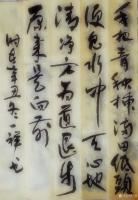 手把青秧插滿田低頭
便見水中天心地
清淨方為道退步
原來是向前
辛丑冬一